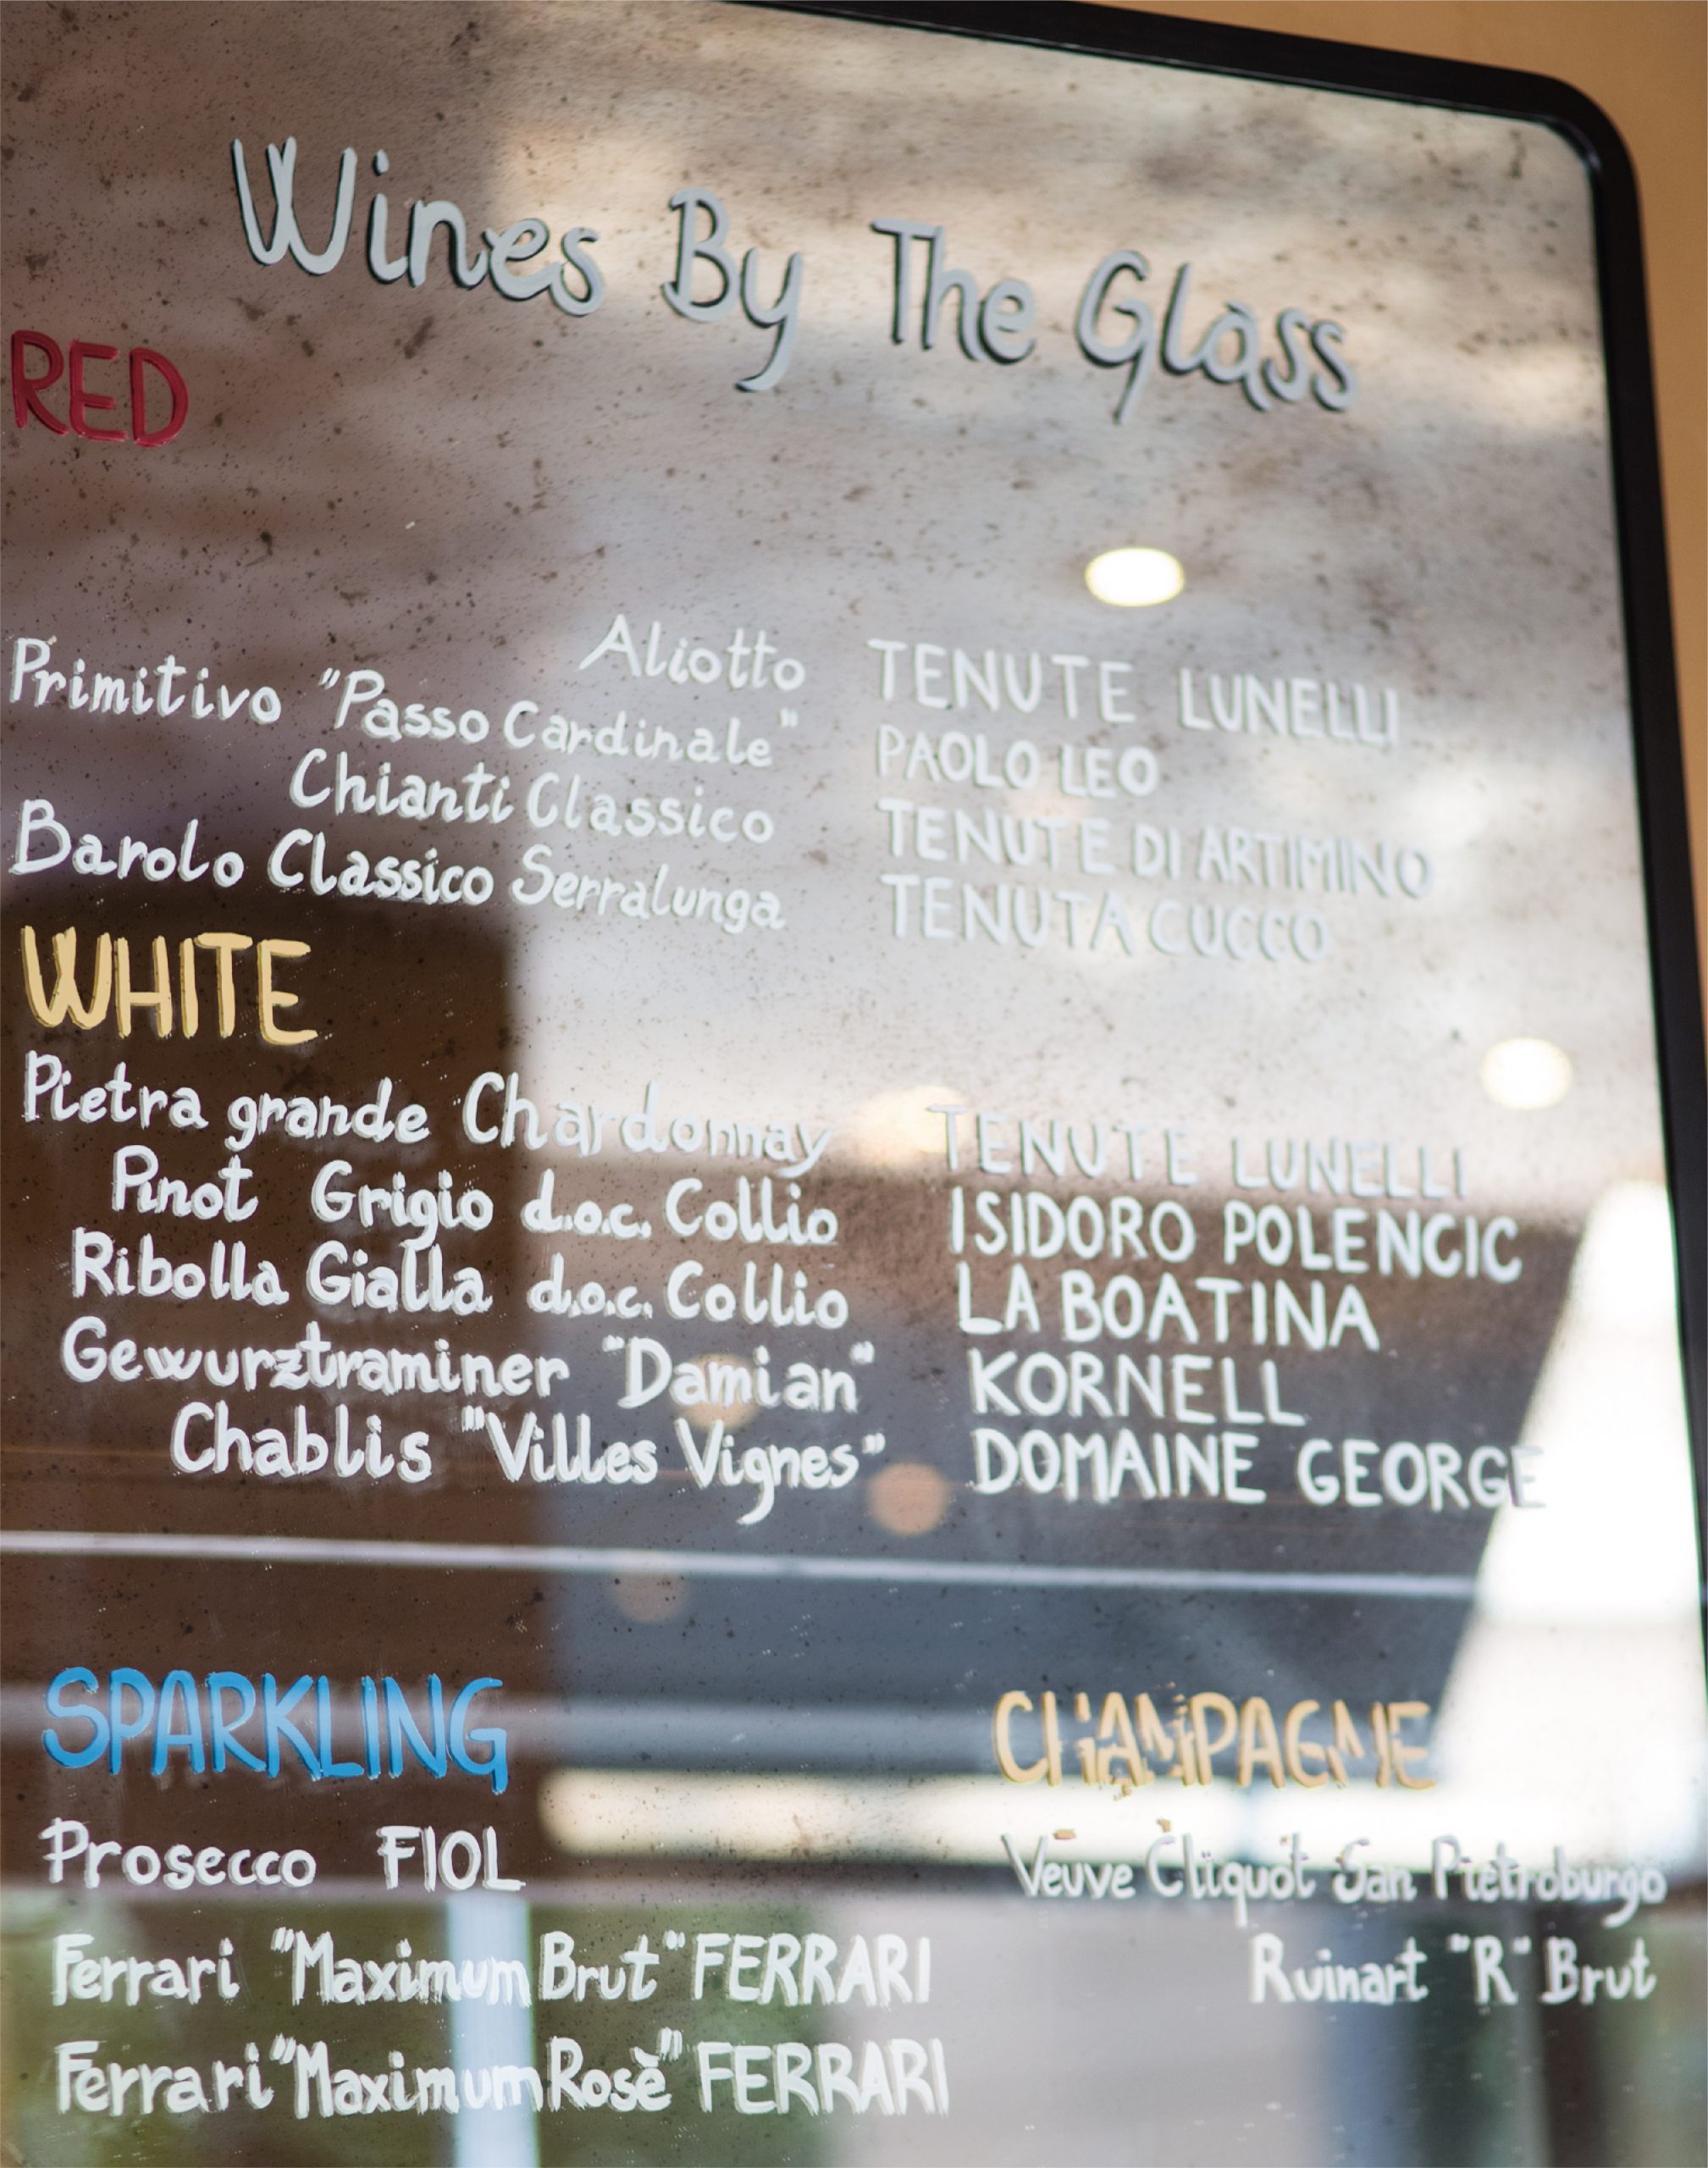 Wines By The Glass
RED
Aliotto TENUTE LUNELLI
Primitivo "Passo Cardinale" PAOLO LEO
Chianti Classico TENUTE DI ARTIMINO
Barolo Classico Serralunga TENUTA CUCCO
WHITE
Pietra grande Chardonnay TENUTE LUNELLI
Pinot Grigio d.o.c. Collio ISIDORO POLENCIC
Ribolla Gialla d.o.c. Collio LA BOATINA
Gewurztraminer "Damian" KORNELL
Chablis "Villes Vignes" DOMAINE GEORGE
SPARKLING
Prosecco FIOL
Ferrari "Maximum Brut" FERRARI
Ferrari "Maximum Rosè" FERRARI
CHAMPAGNE
Veuve Cliquot San Pietroburgo
Ruinart "R" Brut